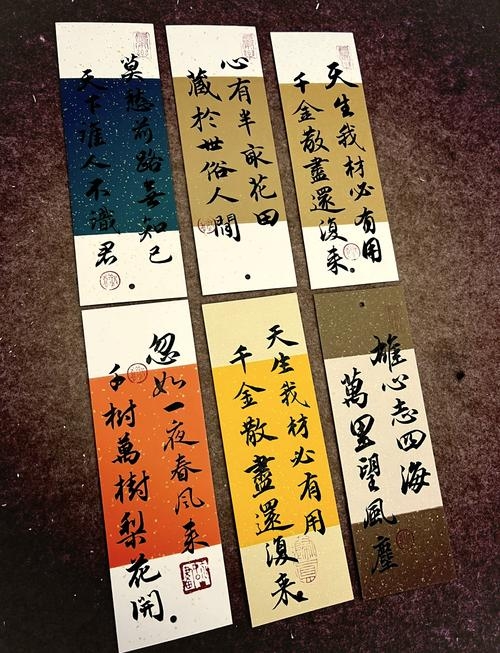 莫愁前路無知己
天下誰人不識君
心有半畝花田
藏於世俗人間
天生我材必有用
千金散盡還復來
忽如一夜春風來
千樹萬樹梨花開
天生我材必有用
千金散盡還復來
雄心志四海
萬里望風塵